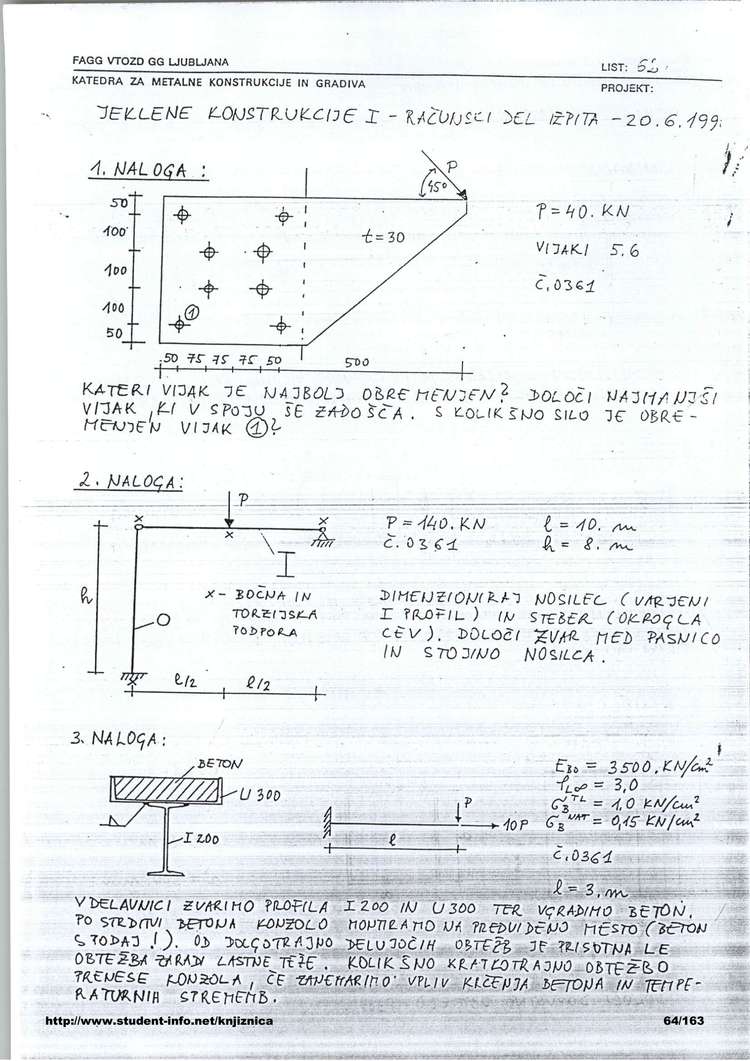 FAGG VTOZD GG LJUBLJANA
LIST:
KATEDRA ZA METALNE KONSTRUKCIJE IN GRADIVA
PROJEKT:
JEKLENE KONSTRUKCIJE I - RAČUNSKI DEL IZPITA - 20.6.199
1. NALOGA :
P
45°
50
100
100
100
50
t = 30
1
50 75 75 75 50
500
P = 40. KN
VIJAKI 5.6
Č.0361
KATERI VIJAK JE NAJBOLJ OBREMENJEN? DOLOČI NAJMANJŠI
VIJAK, KI V SPOJU ŠE ZADOŠČA. S KOLIKŠNO SILO JE OBRE-
MENJEN VIJAK 1?
2. NALOGA:
P
x
x
x
h
l/2
l/2
x - BOČNA IN
TORZIJSKA
PODPORA
P = 140. KN
l = 10. m
Č.0361
h = 8. m
DIMENZIONIRAJ NOSILEC (VARJENI
I PROFIL) IN STEBER (OKROGLA
CEV). DOLOČI ZVAR MED PASNICO
IN STOJINO NOSILCA.
3. NALOGA:
BETON
U 300
I 200
P
10P
l
EB0 = 3500. KN/cm²
φL∞ = 3,0
σB TL = 1,0 KN/cm²
σB NAT = 0,15 KN/cm²
Č.0361
l = 3. m
V DELAVNICI ZVARIMO PROFILA I 200 IN U 300 TER VGRADIMO BETON.
PO STRDITVI BETONA KONZOLO MONTIRAMO NA PREDVIDENO MESTO (BETON
SPODAJ !). OD DOLGOTRAJNO DELUJOČIH OBTEŽB JE PRISOTNA LE
OBTEŽBA ZARADI LASTNE TEŽE. KOLIKŠNO KRATKOTRAJNO OBTEŽBO
PRENESE KONZOLA, ČE ZANEMARIMO VPLIV KRČENJA BETONA IN TEMPE-
RATURNIH SPREMEMB.
http://www.student-info.net/knjiznica
64/163